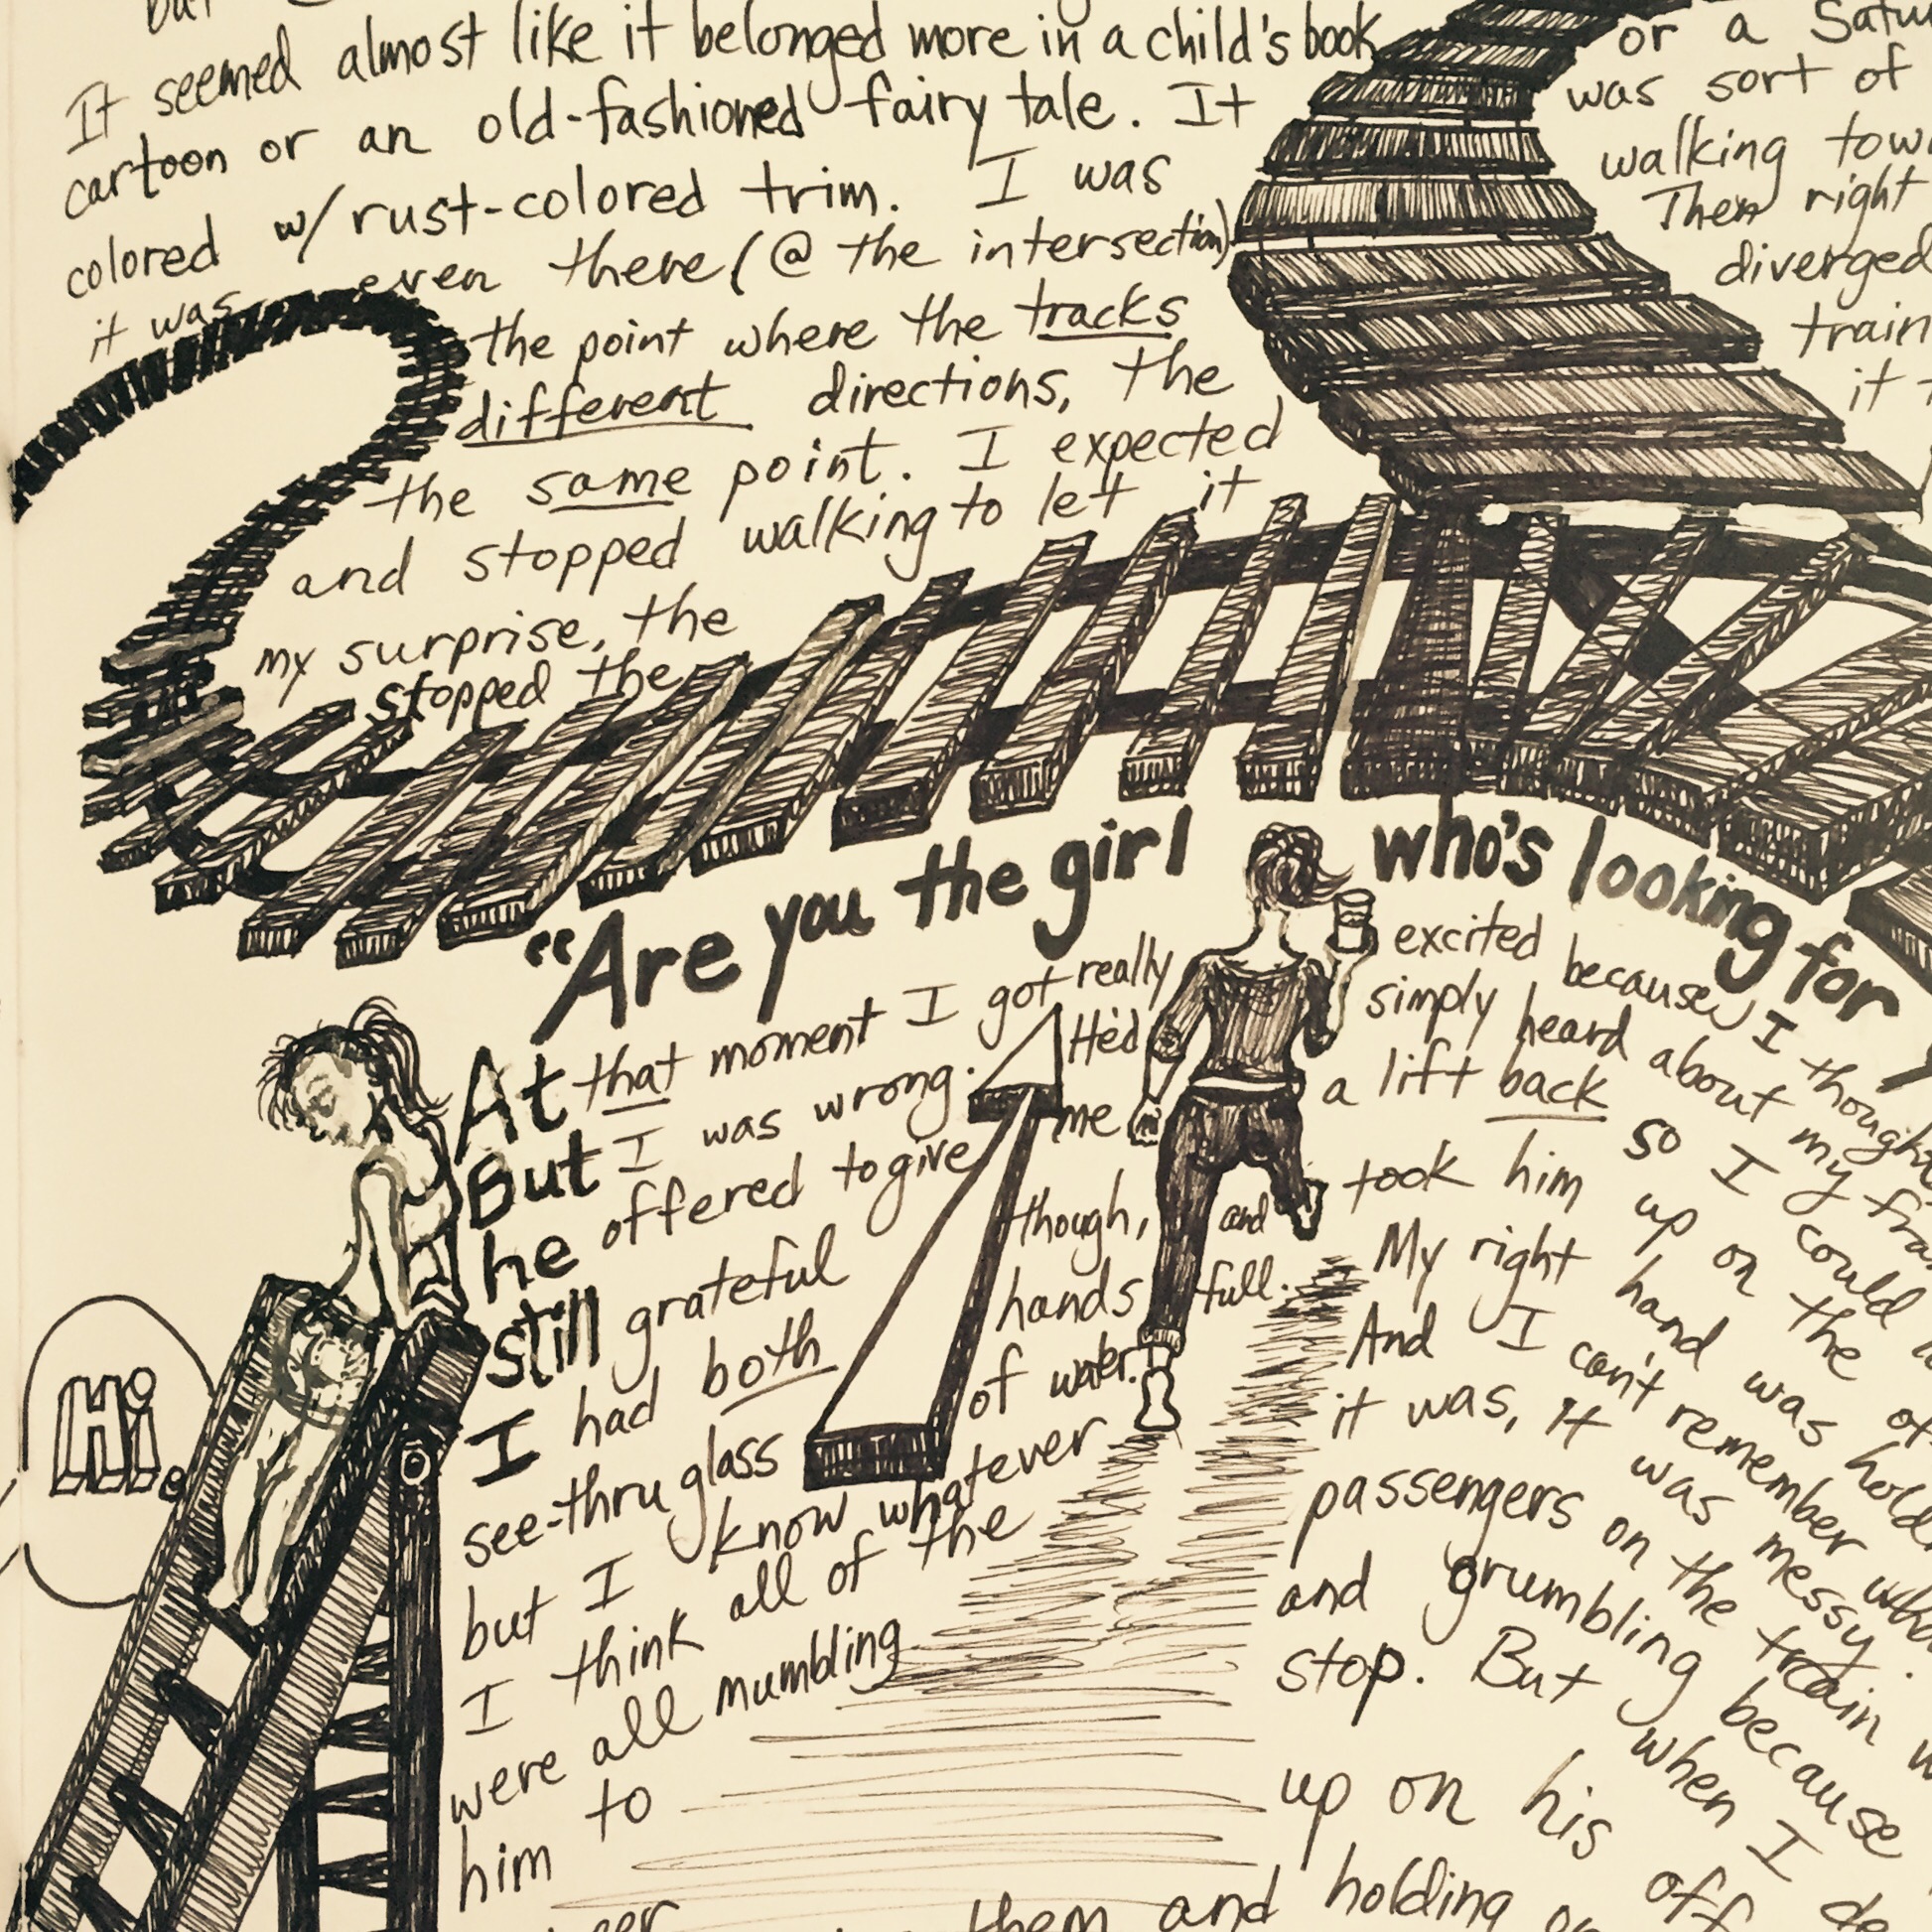 but
It seemed almost like it belonged more in a child's book or a Satu
cartoon or an old-fashioned fairy tale. It was sort of
colored w/ rust-colored trim. I was walking tow
it was even there (@ the intersection) Then right
the point where the tracks diverged
different directions, the train
the same point. I expected it
and stopped walking to let it
my surprise, the
stopped the
"Are you the girl who's looking for
At that moment I got really excited because I though
But I was wrong. He'd simply heard about my fra
he offered to give me a lift back so I could
still grateful though, and took him up on the of
I had both hands full. My right hand was hold
see-thru glass of water. And I can't remember wha
but I know whatever it was, it was messy.
I think all of the passengers on the train w
were all mumbling and grumbling because
him to stop. But when I de
up on his off
them and holding on
Hi.